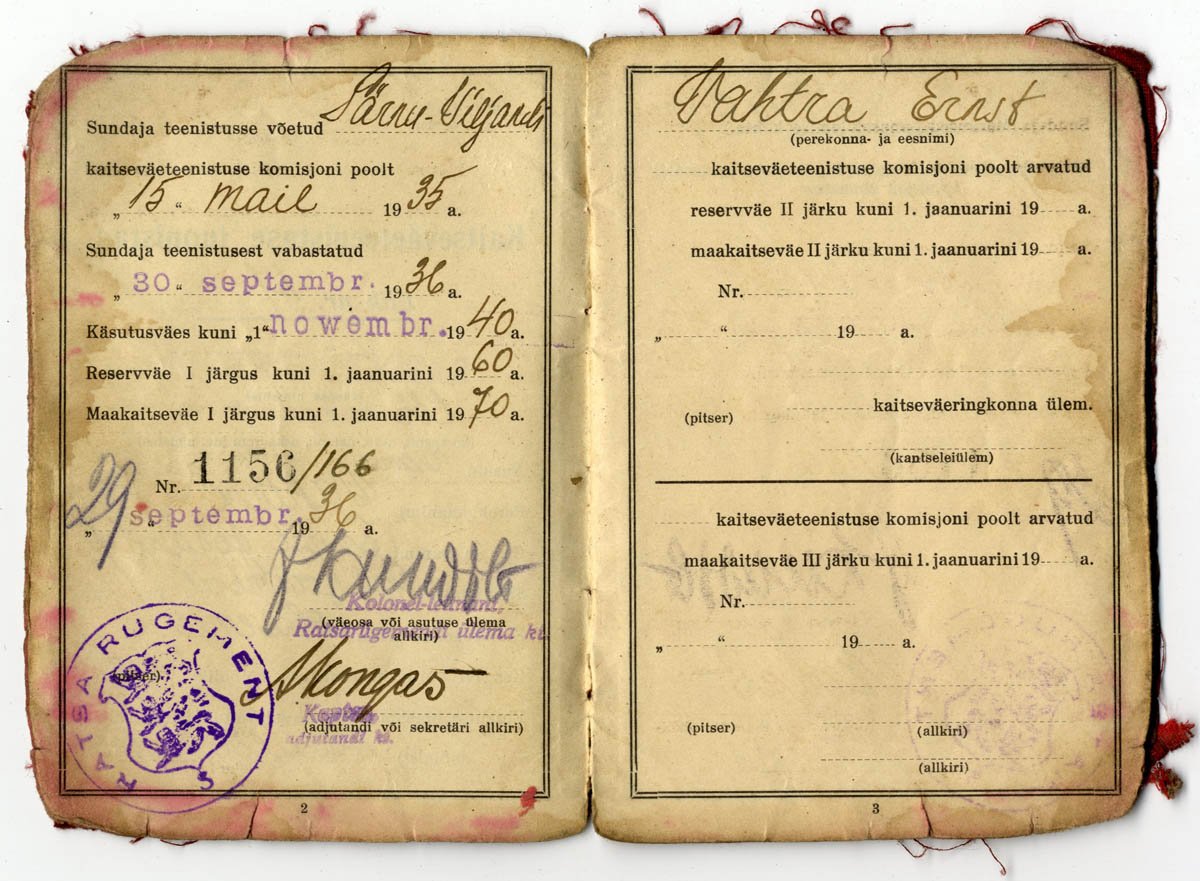 Sundaja teenistusse võetud Pärnu-Viljandi
kaitseväeteenistuse komisjoni poolt
„ 15 “ mail 1935 a.
Sundaja teenistusest vabastatud
„ 30 “ septembr. 1936 a.
Käsutusväes kuni „1“ nowembr. 1940 a.
Reservväe I järgus kuni 1. jaanuarini 1960 a.
Maakaitseväe I järgus kuni 1. jaanuarini 1970 a.
Nr. 1156/166
„ 29 “ septembr. 1936 a.
Kolonel-leitnant,
(väeosa või asutuse ülema
Ratsarügemendi ülema kt.
allkiri)
RATSA RÜGEMENT
(pitser).
AKongas
Kapten
(adjutandi või sekretäri allkiri)
adjutandi kt.
2
Vahtra Ernst
(perekonna- ja eesnimi)
kaitseväeteenistuse komisjoni poolt arvatud
reservväe II järku kuni 1. jaanuarini 19 a.
maakaitseväe II järku kuni 1. jaanuarini 19 a.
Nr.
„ “ 19 a.
kaitseväeringkonna ülem.
(pitser)
(kantseleiülem)
kaitseväeteenistuse komisjoni poolt arvatud
maakaitseväe III järku kuni 1. jaanuarini 19 a.
Nr.
„ “ 19 a.
(pitser)
(allkiri)
(allkiri)
3